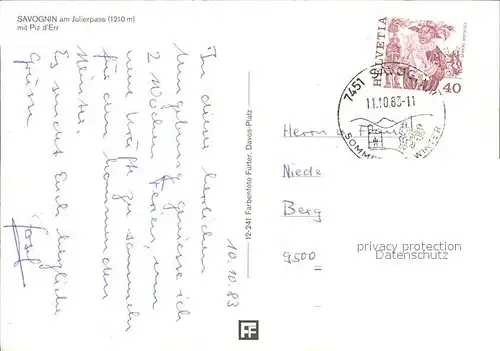 SAVOGNIN am Julierpass (1210 m)
mit Piz d'Err
10.10.83
In dieser herrlichen
Umgebung geniesse ich
2 Wochen Ferien, um
neue Kräfte zu sammeln
für den kommenden
Winter.
Es grüsst Euch herzliche
Grüsse
Josef
12-241 Farbenfoto Furter, Davos-Platz
HELVETIA
40
7451 SAVOGNIN
11.10.83-11
SOMMER WINTER
Herrn u. Frau
Niede
Berg
9500
privacy protection
Datenschutz
FF